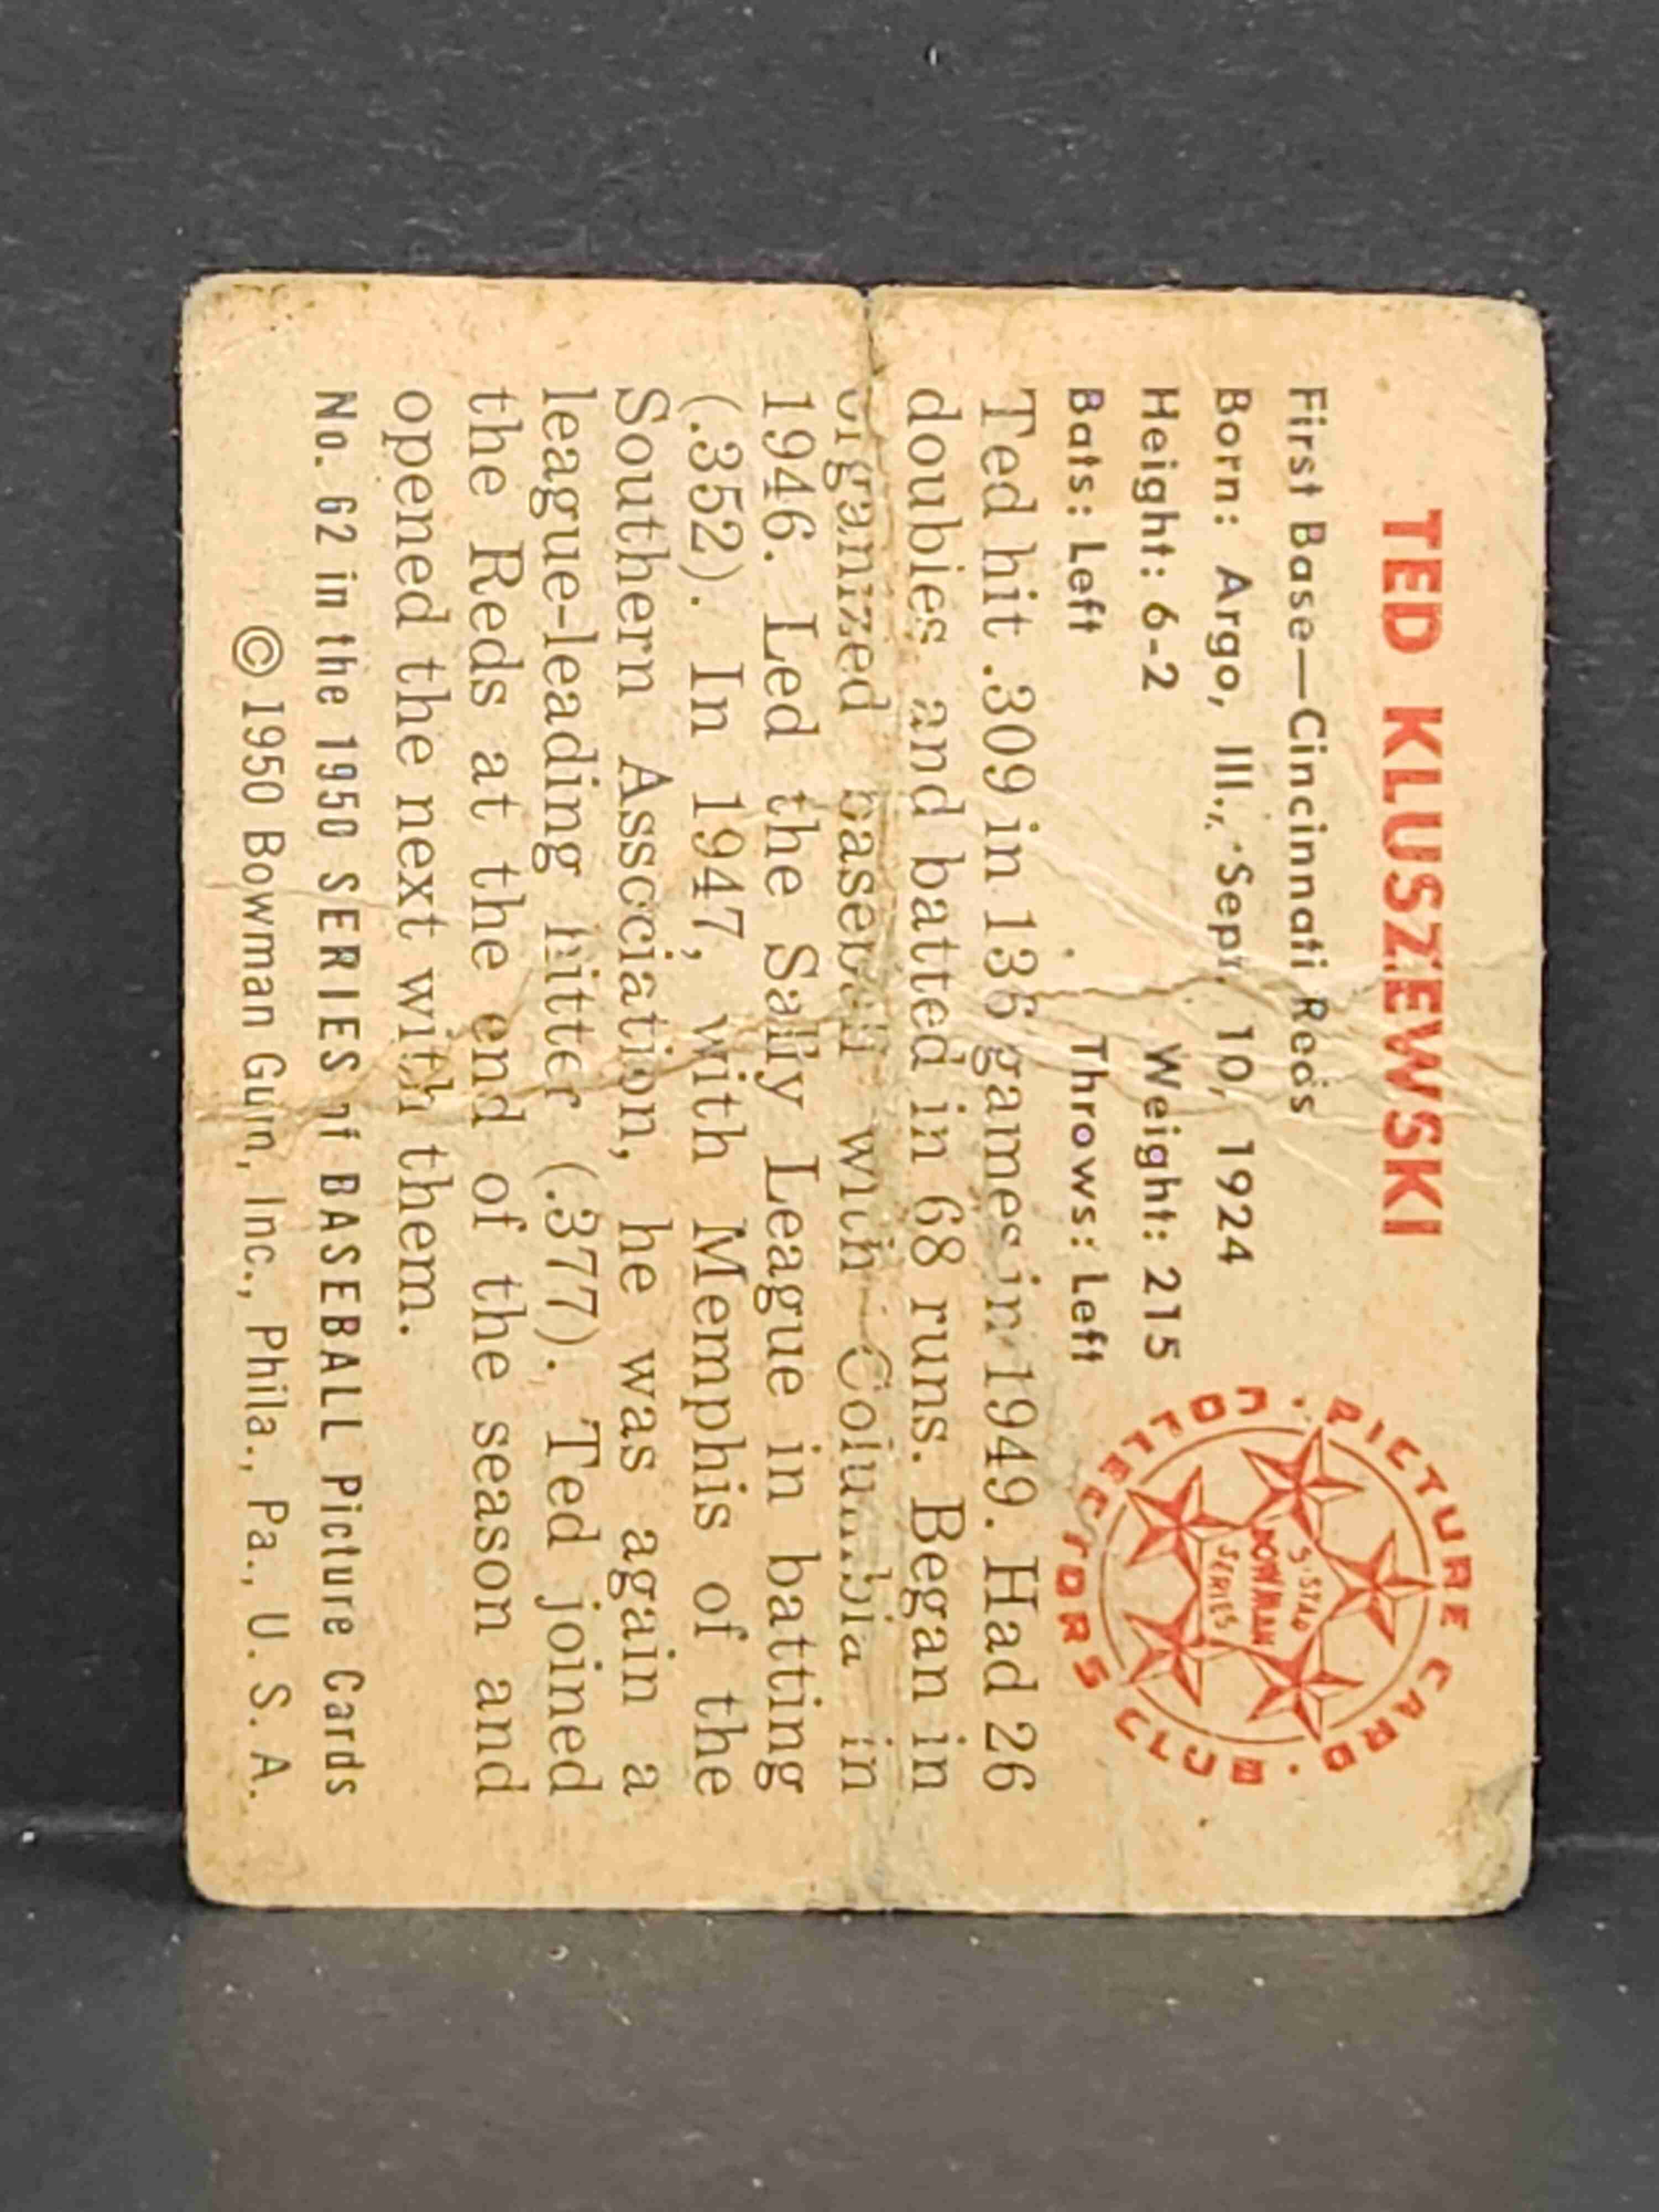 TED KLUSZEWSKI
First Base—Cincinnati Reds
Born: Argo, Ill., Sept. 10, 1924
Height: 6-2 Weight: 215
Bats: Left Throws: Left
PICTURE CARD · COLLECTORS CLUB ·
5-STAR
BOWMAN
SERIES
Ted hit .309 in 136 games in 1949. Had 26
doubles and batted in 68 runs. Began in
organized baseball with Columbia in
1946. Led the Sally League in batting
(.352). In 1947, with Memphis of the
Southern Association, he was again a
league-leading hitter (.377). Ted joined
the Reds at the end of the season and
opened the next with them.
No. 62 in the 1950 SERIES of BASEBALL Picture Cards
© 1950 Bowman Gum, Inc., Phila., Pa., U. S. A.